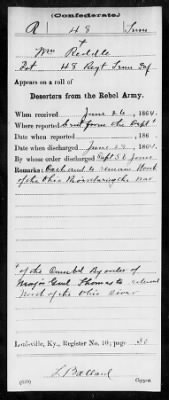 (Confederate.)
R 48 Tenn
Wm Reddle
Pvt 48 Regt Tenn Inf
Appears on a roll of
Deserters from the Rebel Army.
When received June 26, 1864.
Where reported
Date when reported , 186 .
Date when discharged June 29, 1864.
By whose order discharged
Remarks: to remain North
of the Ohio River during the war
of the Cumbd By order of
Major Genl Thomas to remain
North of the Ohio River
Louisville, Ky., Register No. 10; page 30
Copyist.